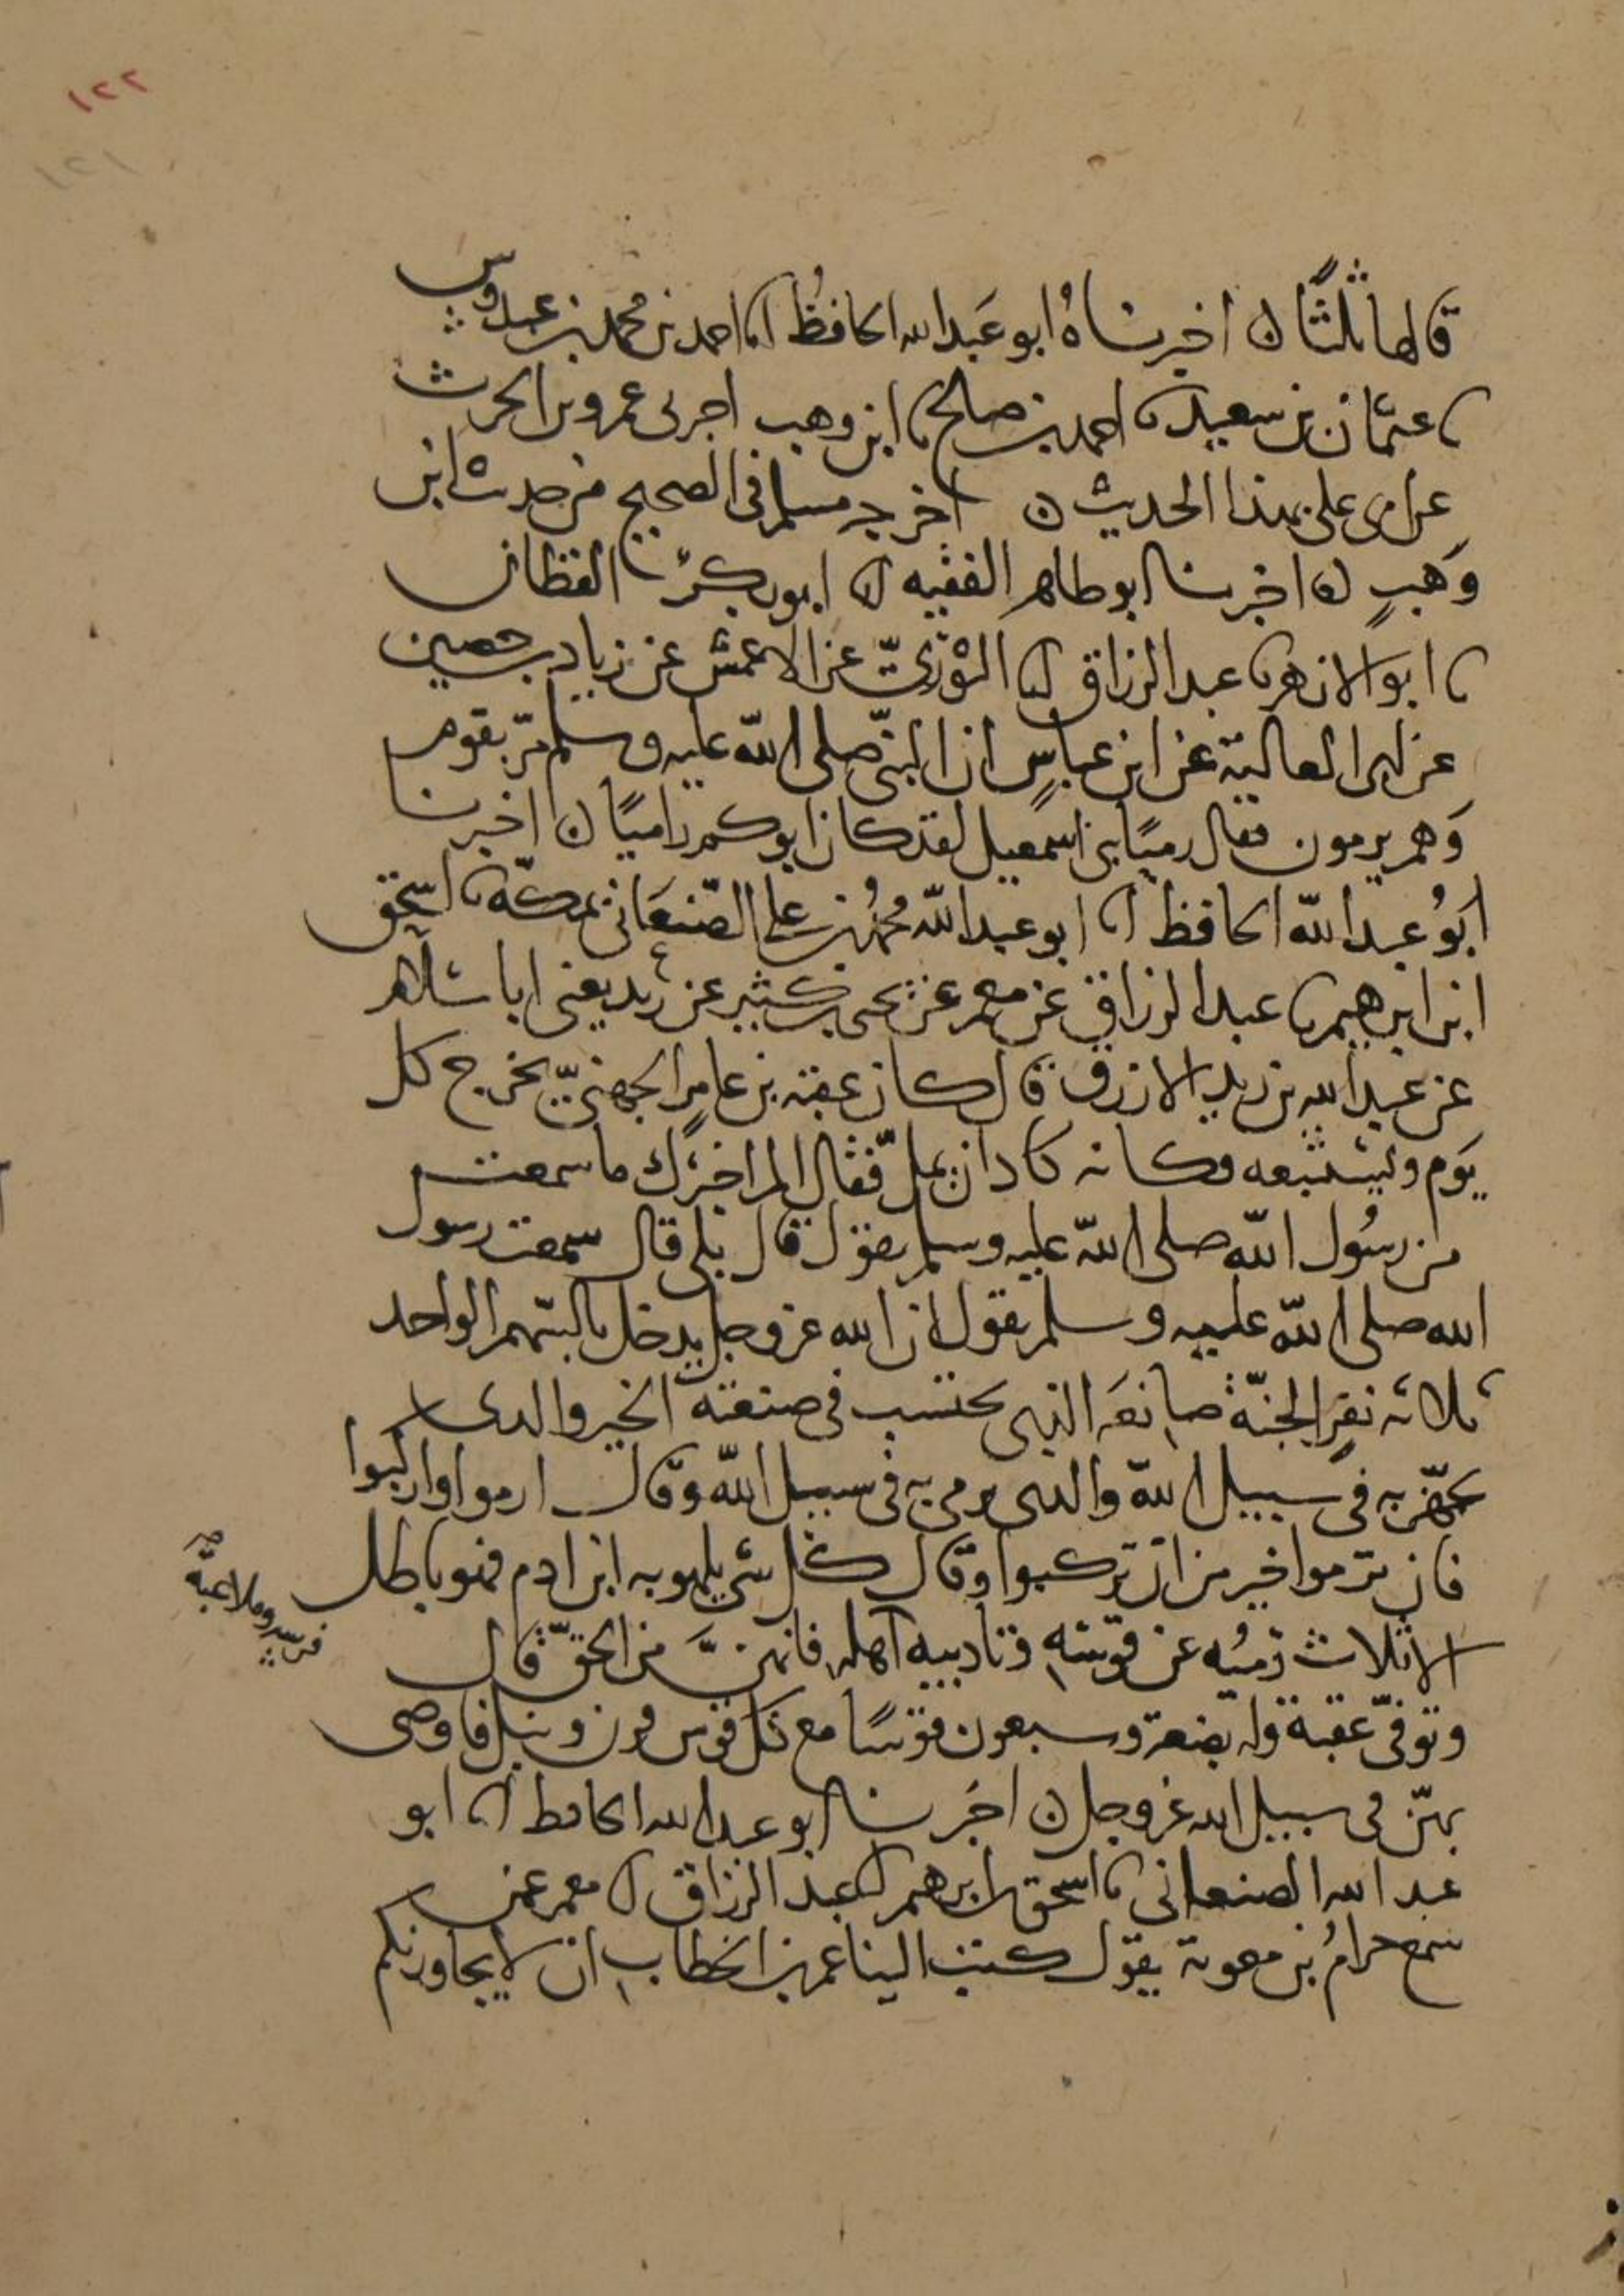 ١٢٢
١٢١
قالها ثلثًا ن اخبرناهُ ابو عَبد الله الحافظُ انا احمد بن محمد بن عبدوس
نا عثمان بن سعيد نا احمد بن صالح نا ابن وهب اخبرنى عمرو بن الحرث
عن ابى على بهذا الحديث ن اخرجه مسلم فى الصحيح من حديث ابن
وَهبٍ ن اخبرنا ابو طاهر الفقيه انا ابو بكر القطان
نا ابو الازهر نا عبد الرزاق انا الثوْرىّ عن الاعمش عن زياد بن حصين
عن ابى العالية عن ابن عباسٍ ان النبىّ صلى الله عليه وسلم مرّ بقوم
وَهم يرمون فقال رميًا بنى اسمعيل لقد كان ابوكم راميًا ن اخبرنا
ابوُ عبد الله الحافظ انا ابو عبد الله محمدُ بن على الصّنعَانى بمكة نا اسحٰق
ابن ابرهيم نا عبد الرزاق عن معمر عن يحيى بن كثير عن زيد يعنى ابا سلام
عن عبد الله بن زيد الازرق قال كان عقبة بن عامر الجهنىّ يخرج كل
يَوم ويستتبعه فكانه كاد ان يملّ فقال الم اخبرك ما سمعت
من رسُول الله صلى الله عليه وسلم يقول قال بلى قال سمعت رسول
الله صلى الله عليه وسلم يقول ان الله عز وجل يدخل بالسّهم الواحد
ثلاثة نفرٍ الجنّة صانعَه الذى يحتسب فى صنعته الخير والذى
يجهّز به فى سبيل الله والذى يرمى به فى سبيل الله وقال ارموا واركبوا
فان ترموا خير من ان تركبوا وقال كل شئ يلهو به ابن ادم فهو باطل
الا ثلاث رميُه عن قوسه وتاديبه اهله فانهنّ من الحقّ قال
فرسه وملاعبةُ صح
وتوفىّ عقبة وله بضعة وسبعون قوسًا مع كل قوس قرن ونبل فاوصى
بهنّ فى سبيل الله عز وجل ن اخبرنا ابو عبد الله الحافظ انا ابو
عبد الله الصنعانى نا اسحق بن ابرهيم انا عبد الرزاق انا معمر عن
سمع حرامُ بن معوية يقول كتب الينا عمر بن الخطاب ان لا يجاورنكم